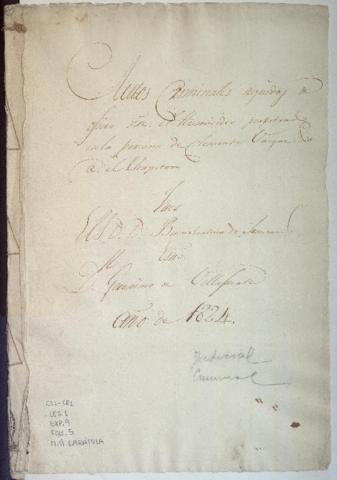 Autos Criminales seguidos de
ofico sre. el Homicidio perpetrado
en la persona de Clemente Vargas
a. el Chapeton
Juez
El S. D. D. Buenaventura de
Esno.
D. Geronimo de Villafuerte
Año de 1824.
Judicial
Criminal
CS1-CR1
LEG.1
EXP.9
FOL. 5
M.A CARÁTULA